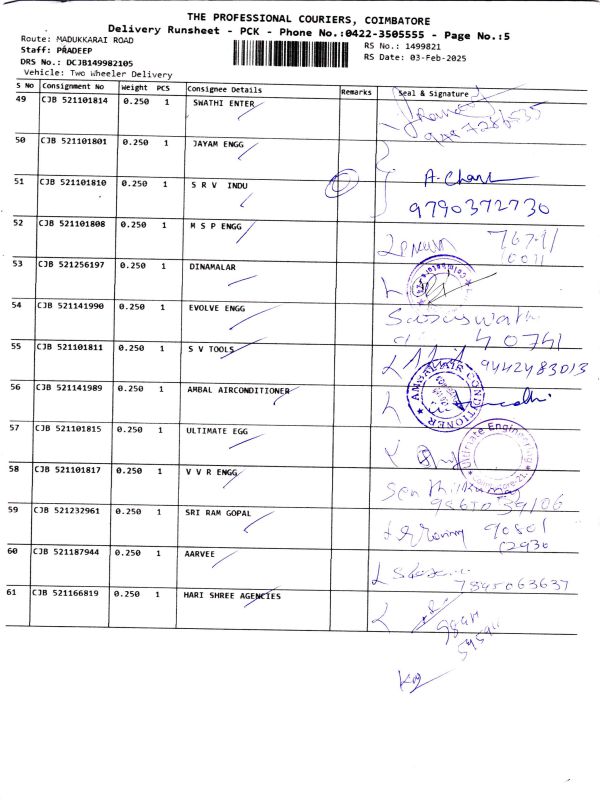 THE PROFESSIONAL COURIERS, COIMBATORE
Delivery Runsheet - PCK - Phone No.:0422-3505555 - Page No.:5
Route: MADUKKARAI ROAD
RS No.: 1499821
Staff: PRADEEP
RS Date: 03-Feb-2025
DRS No.: DCJB149982105
Vehicle: Two Wheeler Delivery
S No Consignment No Weight PCS Consignee Details Remarks Seal & Signature
49 CJB 521101814 0.250 1 SWATHI ENTER
50 CJB 521101801 0.250 1 JAYAM ENGG
51 CJB 521101810 0.250 1 S R V INDU
9790372730
52 CJB 521101808 0.250 1 M S P ENGG
53 CJB 521256197 0.250 1 DINAMALAR
54 CJB 521141990 0.250 1 EVOLVE ENGG
55 CJB 521101811 0.250 1 S V TOOLS 9442483013
56 CJB 521141989 0.250 1 AMBAL AIRCONDITIONER
57 CJB 521101815 0.250 1 ULTIMATE EGG Ultimate Engineering
58 CJB 521101817 0.250 1 V V R ENGG
59 CJB 521232961 0.250 1 SRI RAM GOPAL
60 CJB 521187944 0.250 1 AARVEE
61 CJB 521166819 0.250 1 HARI SHREE AGENCIES